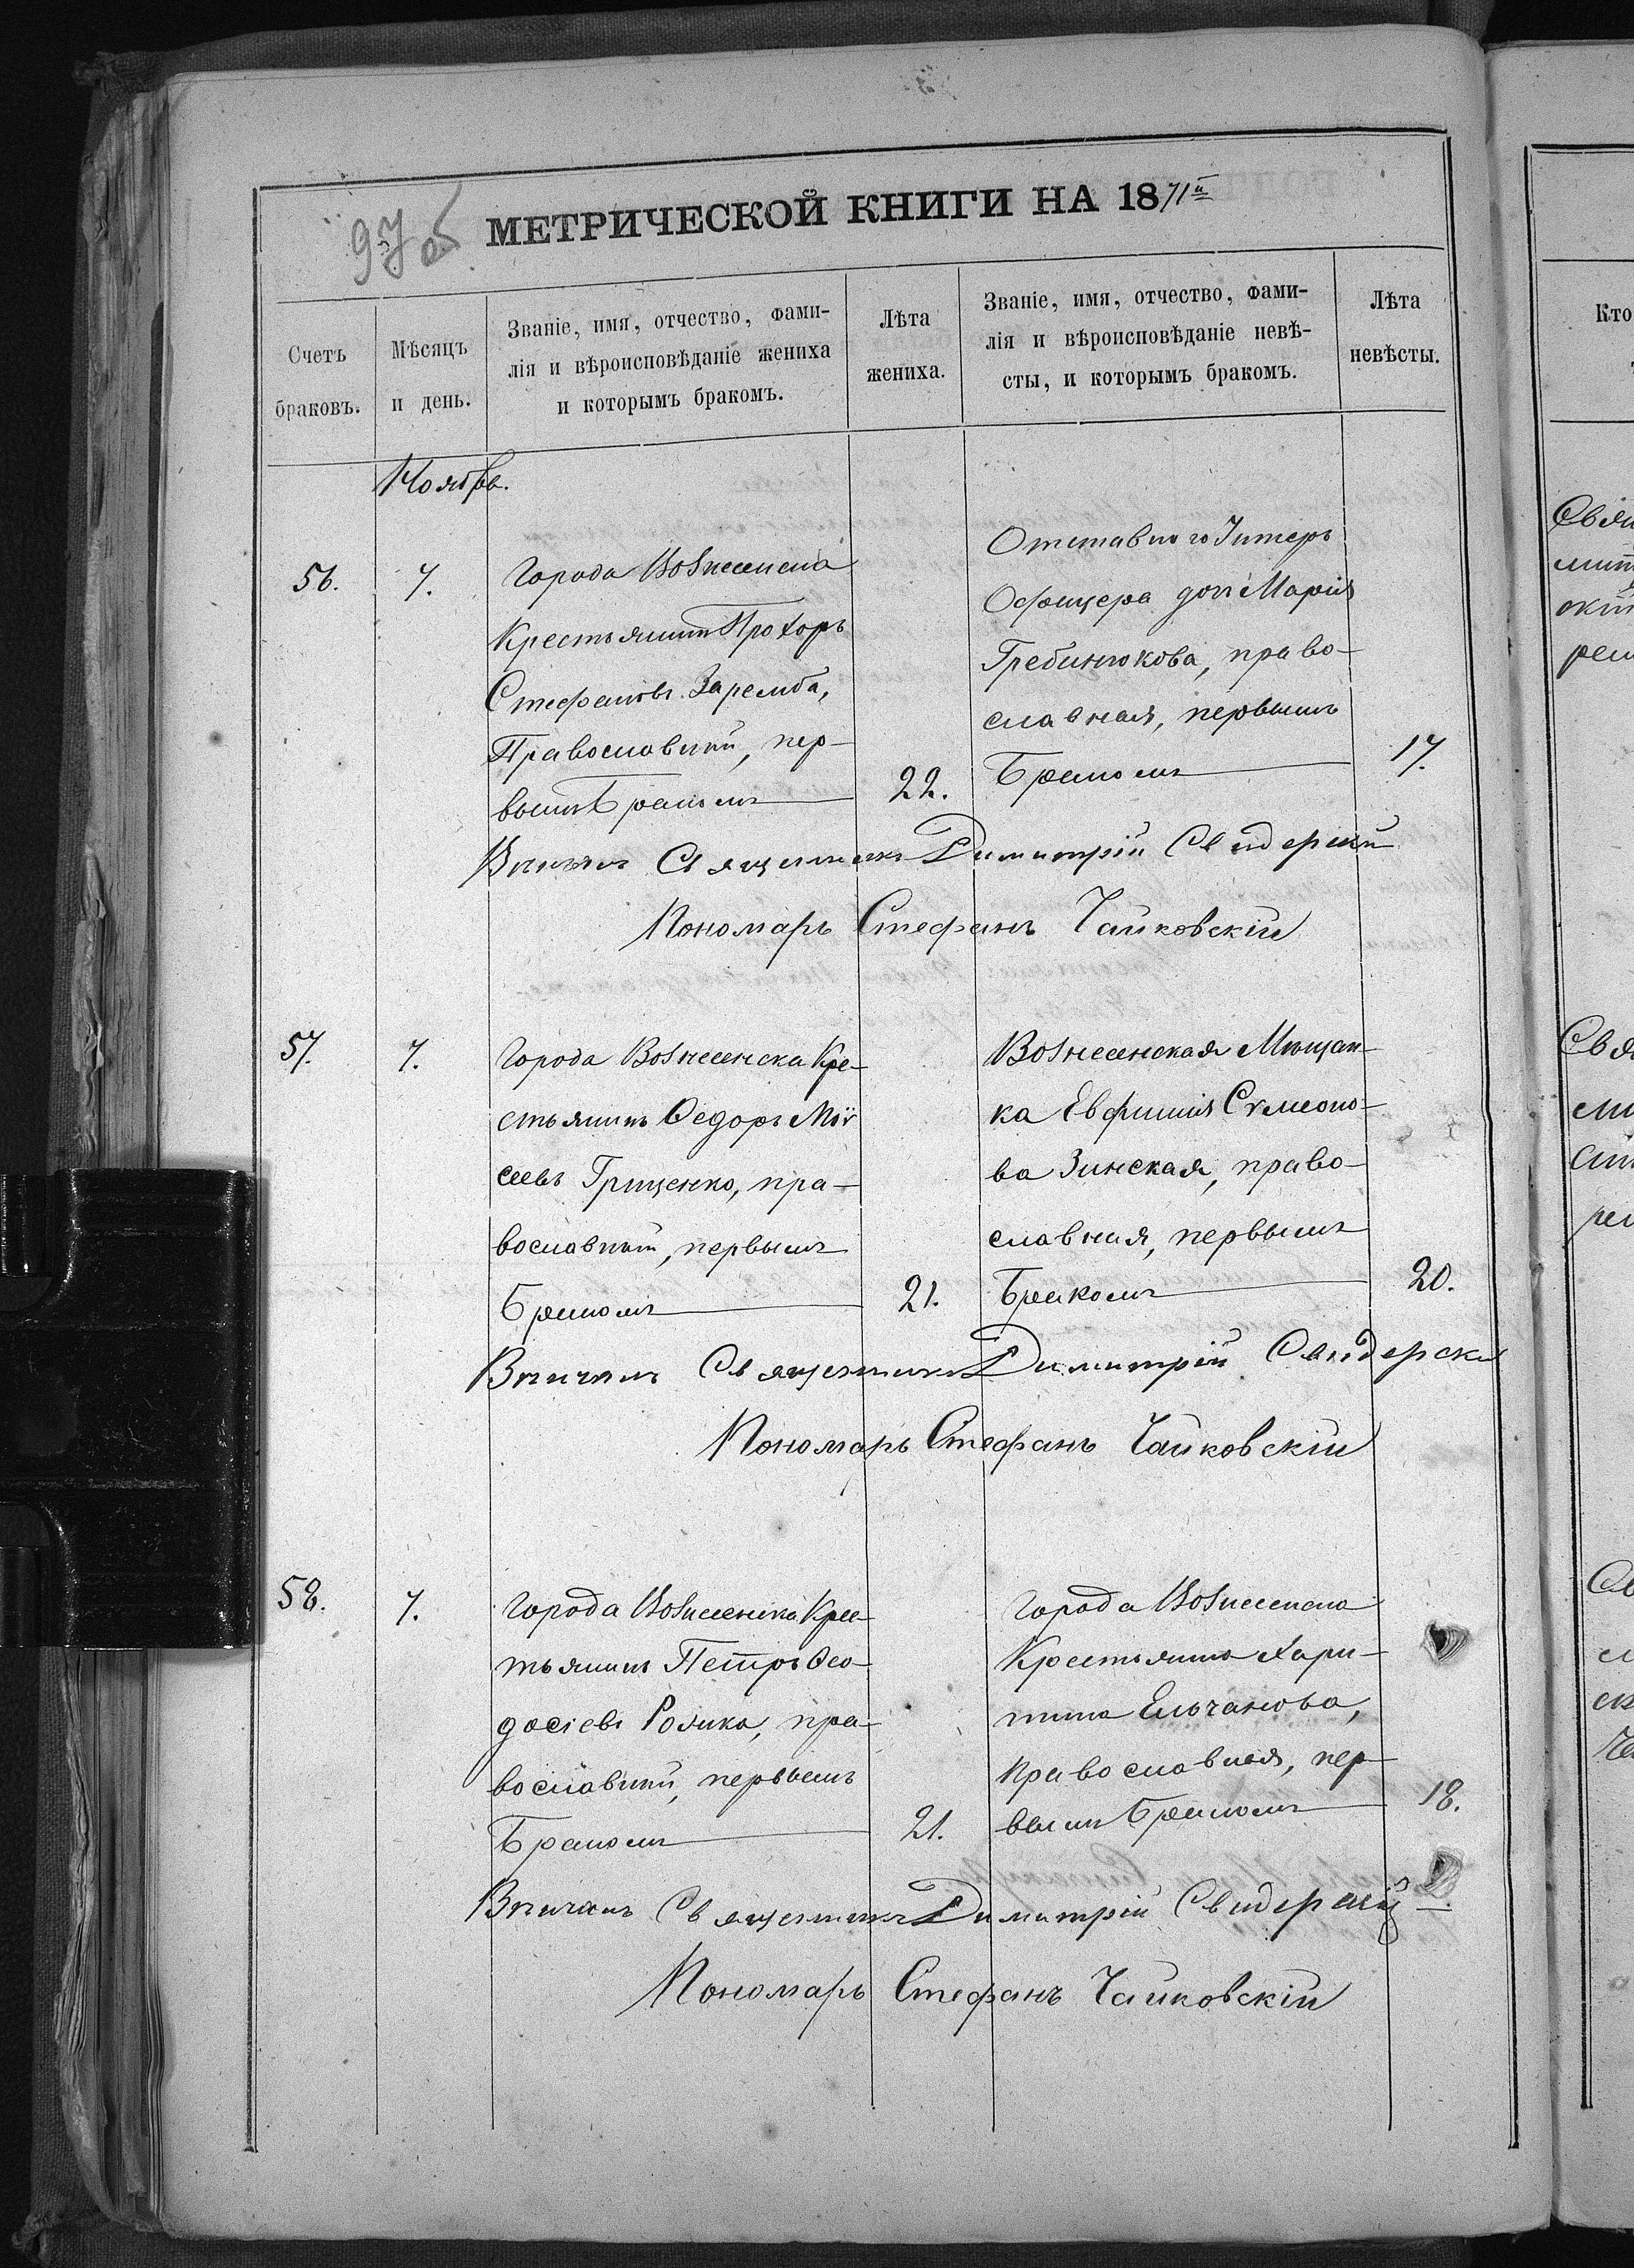 97 об
МЕТРИЧЕСКОЙ КНИГИ НА 1871й
Счетъ
браковъ.
Мѣсяцъ
и день.
Званіе, имя, отчество, фами-
лія и вѣроисповѣданіе жениха
и которымъ бракомъ.
Лѣта
жениха.
Званіе, имя, отчество, фами-
лія и вѣроисповѣданіе невѣ-
сты, и которымъ бракомъ.
Лѣта
невѣсты.
Ноябрь.
56.
7.
Города Вознесенска
Крестьянинъ Прохоръ
Стефановъ Заремба,
Православный, пер-
вымъ Бракомъ
22.
Отставного Унтеръ
Офицера дочь Марія
Гребинюкова, право-
славная, первымъ
Бракомъ
17.
Вѣнчалъ Священникъ Димитрій Свидерскій
Пономарь Стефанъ Чайковскій
57.
7.
Города Вознесенска Кре-
стьянинъ Ѳедоръ Мои-
сеевъ Грищенко, пра-
вославный, первымъ
Бракомъ
21.
Вознесенская Мѣщан-
ка Евфимія Симеоно-
ва Зинская, право-
славная, первымъ
Бракомъ
20.
Вѣнчалъ Священникъ Димитрій Свидерскій
Пономарь Стефанъ Чайковскій
58.
7.
Города Вознесенска Крес-
тьянинъ Петръ Ѳео-
досіевъ пра-
вославный, первымъ
Бракомъ
21.
Города Вознесенска
Крестьянка Хари-
тина Ельчанова,
православная, пер-
вымъ Бракомъ
18.
Вѣнчалъ Священникъ Димитрій Свидерскій
Пономарь Стефанъ Чайковскій
Кто